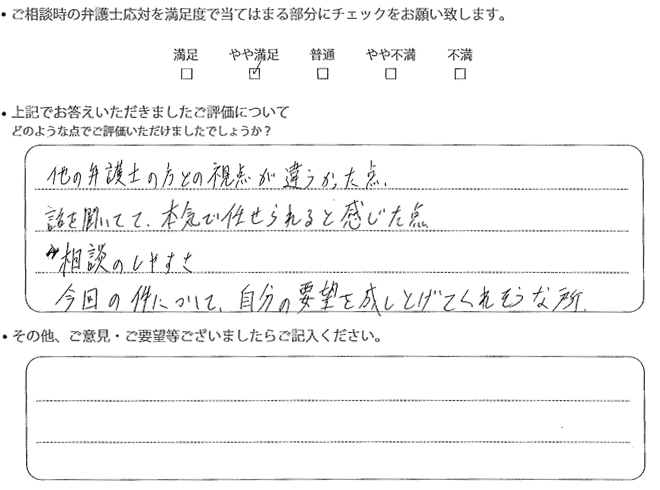 ・ご相談時の弁護士応対を満足度で当てはまる部分にチェックをお願い致します。
満足 やや満足 普通 やや不満 不満
□ ☑ □ □ □
・上記でお答えいただきましたご評価について
どのような点でご評価いただけましたでしょうか？
他の弁護士の方との視点が違うかった点、
話を聞いてて、本気で任せられると感じた点
相談のしやすさ
今回の件について、自分の要望を成しとげてくれそうな所、
・その他、ご意見・ご要望等ございましたらご記入ください。